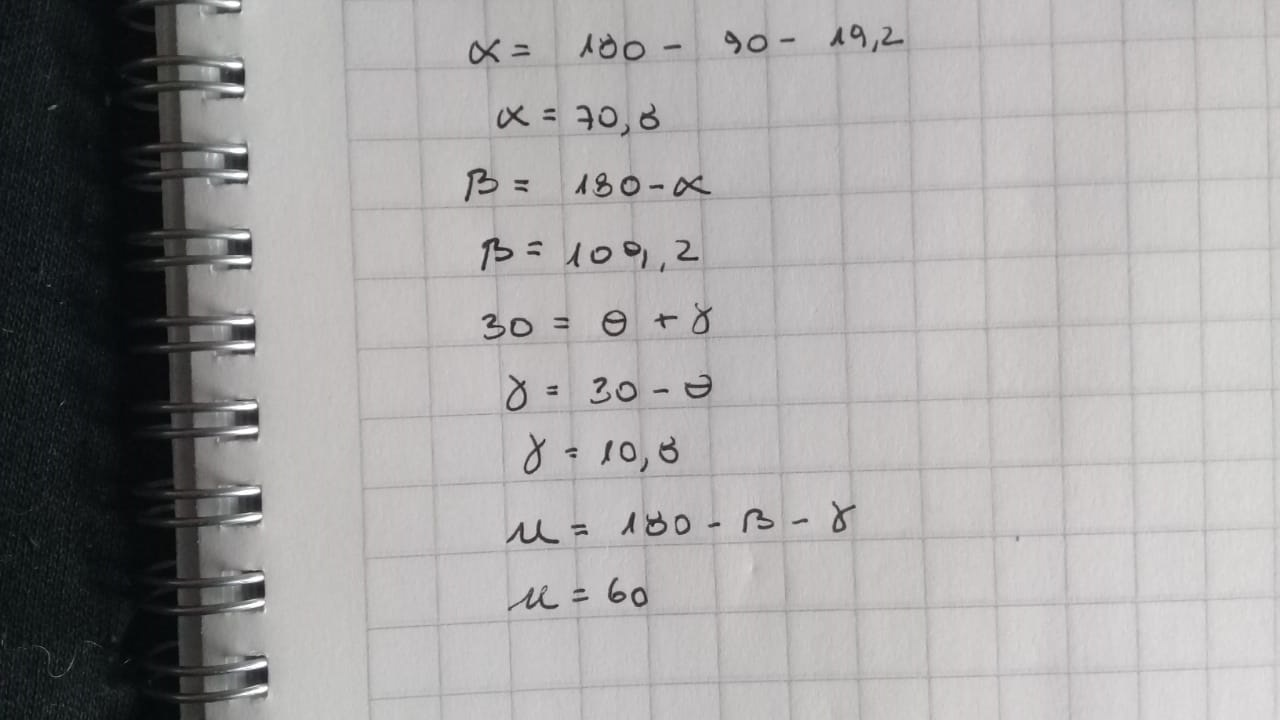 α = 180 - 90 - 19,2
α = 70,8
β = 180 - α
β = 109,2
30 = θ + γ
γ = 30 - θ
γ = 10,8
μ = 180 - β - γ
μ = 60